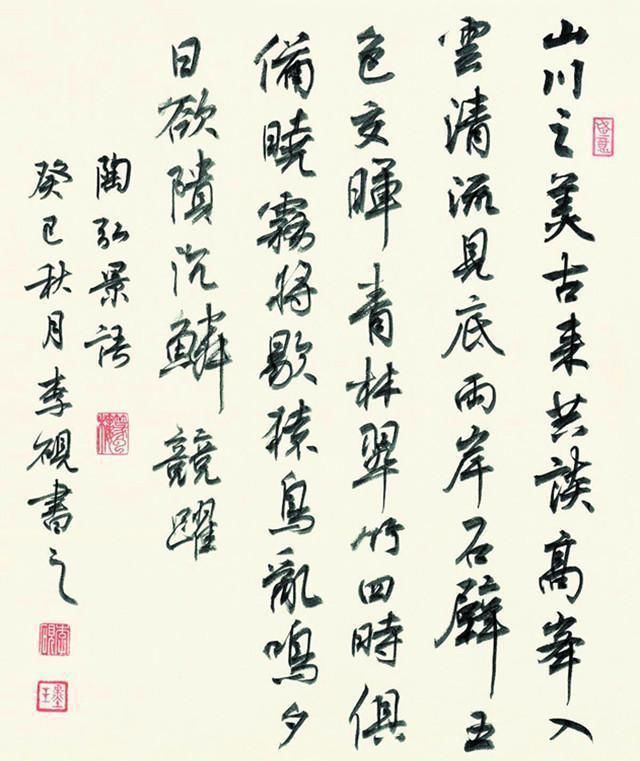 山川之美古来共談高峯入
雲清流見底兩岸石壁五
色交暉青林翠竹四時俱
備曉霧將歇猿鳥亂鳴夕
日欲隤沉鱗競躍
陶弘景語
癸巳秋月李硯書之
李硯